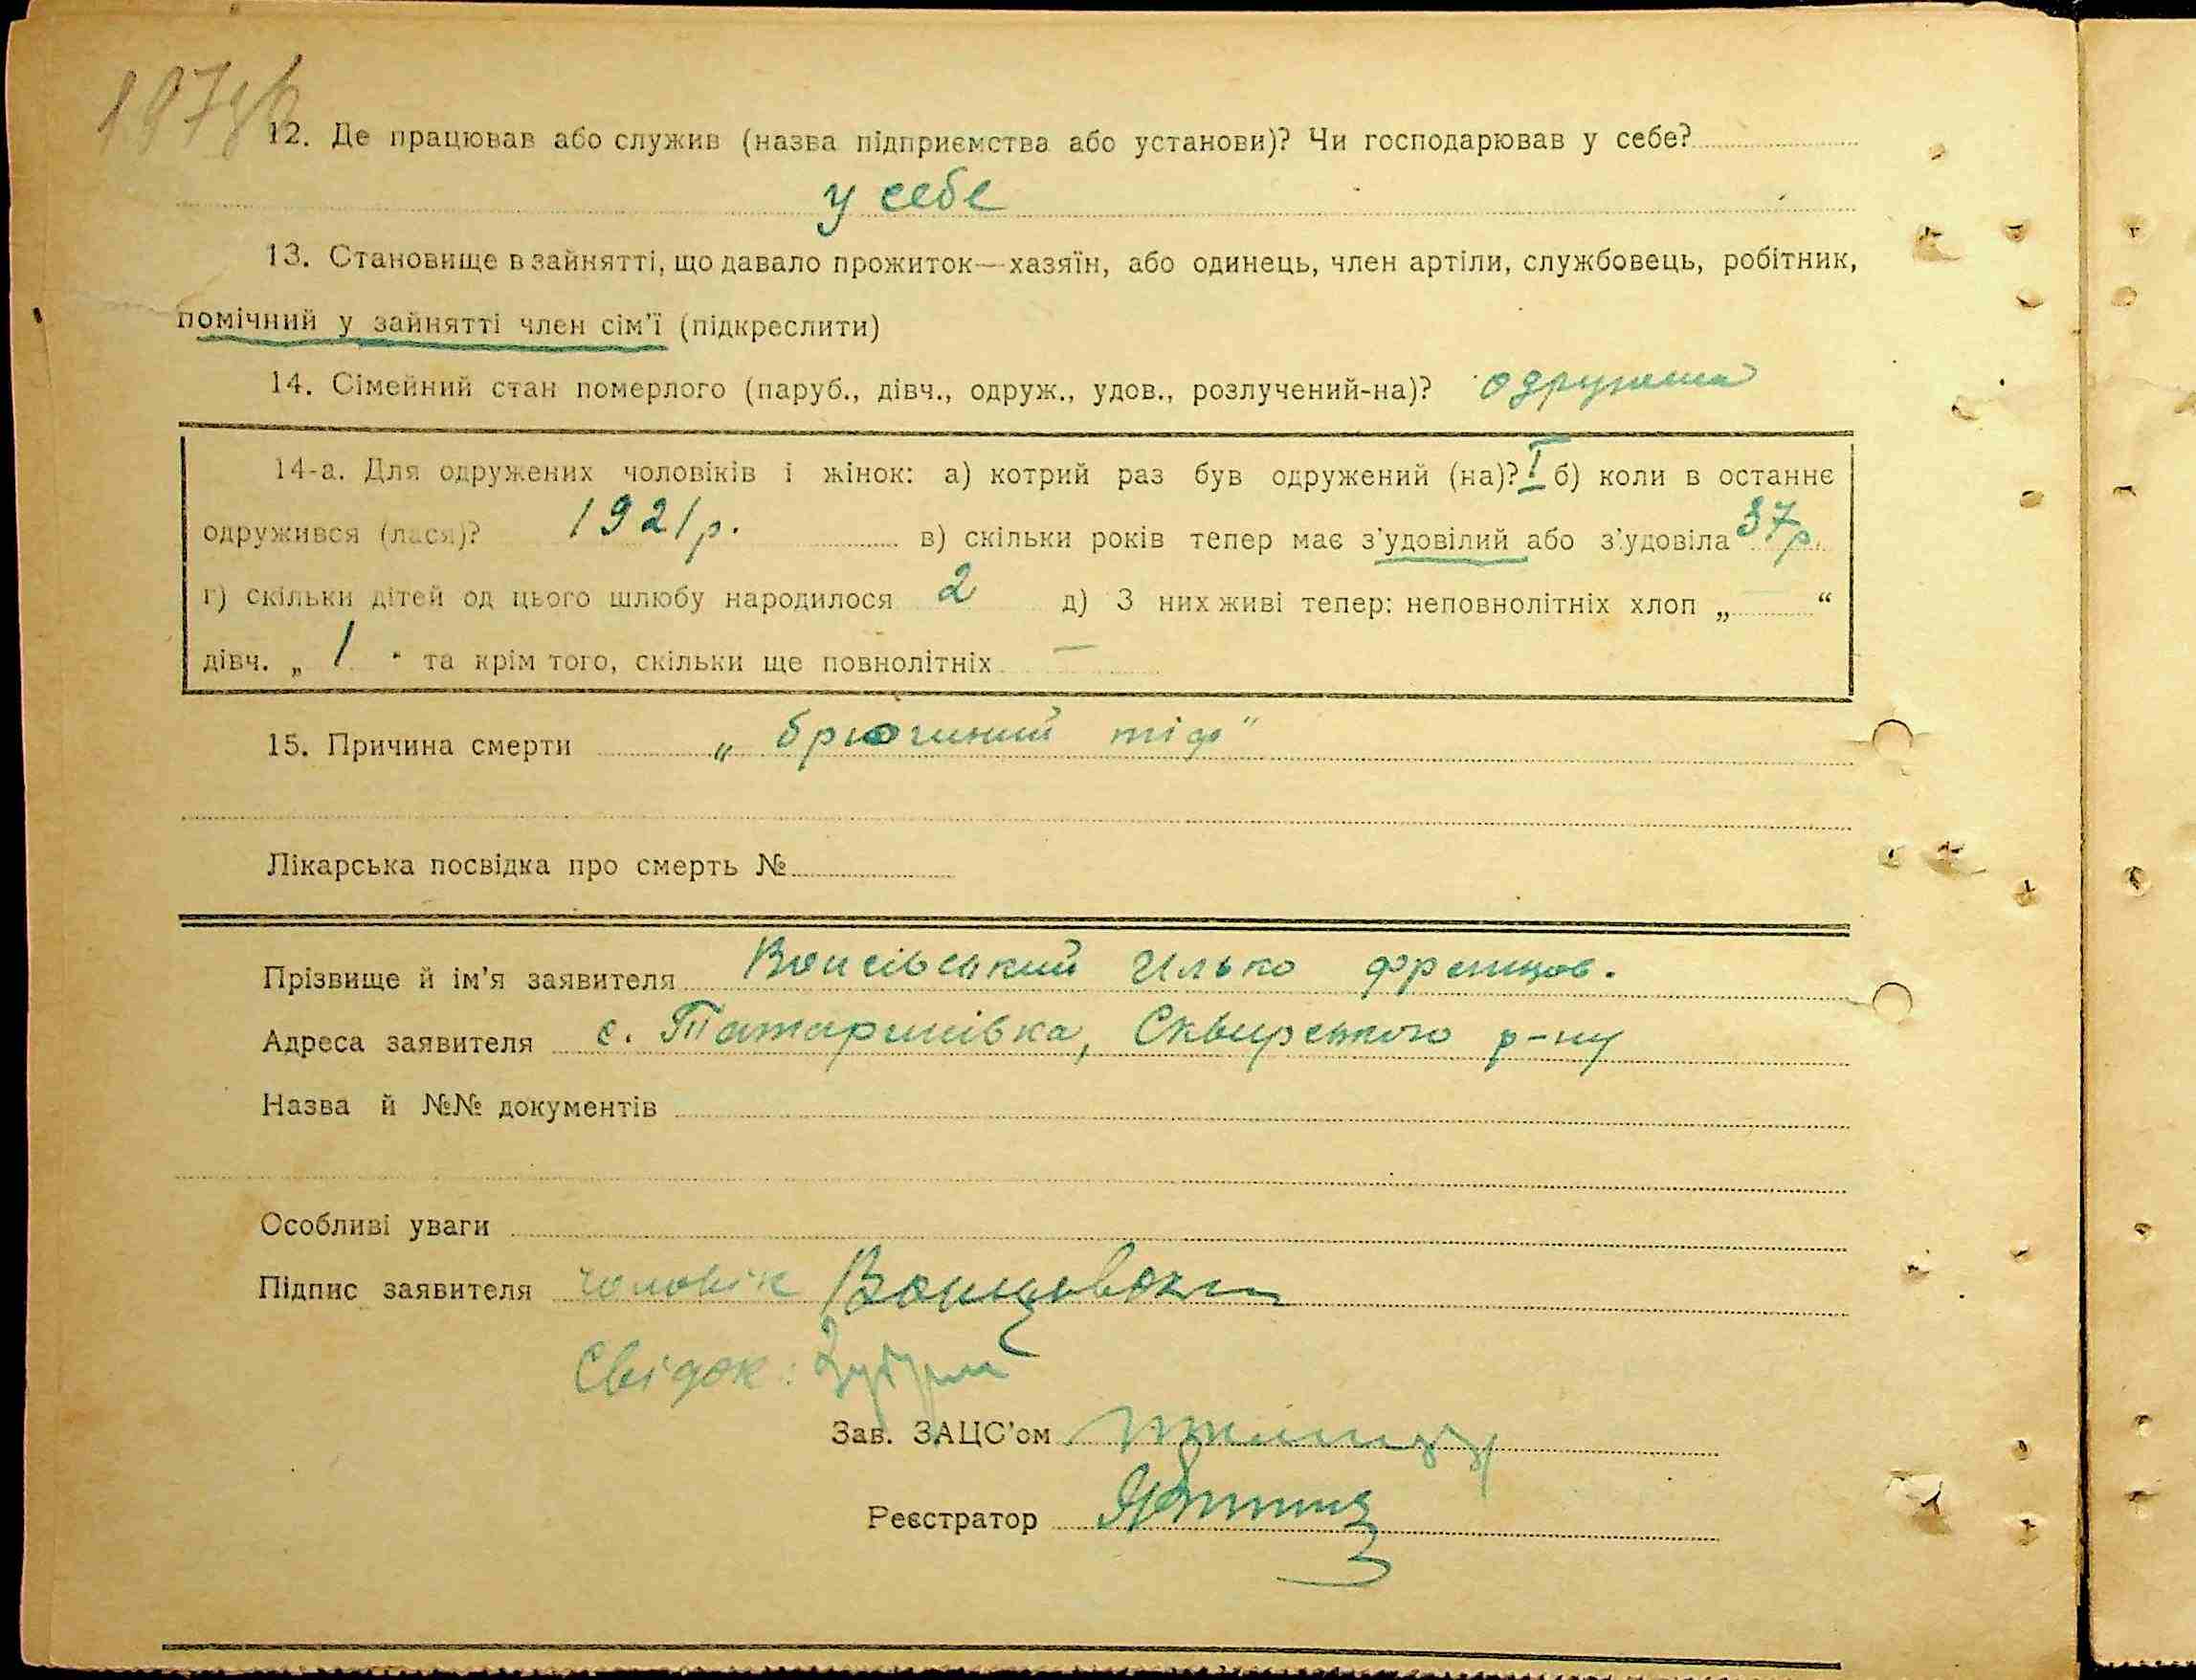 197зв
12. Де працював або служив (назва підприємства або установи)? Чи господарював у себе?
у себе
13. Становище в зайнятті, що давало прожиток—хазяїн, або одинець, член артіли, службовець, робітник,
помічний у зайнятті член сім'ї (підкреслити)
14. Сімейний стан померлого (паруб., дівч., одруж., удов., розлучений-на)? одружена
14-а. Для одружених чоловіків і жінок: а) котрий раз був одружений (на)? I б) коли в останнє
одружився (лася)? 1921 р. в) скільки років тепер має з'удовілий або з'удовіла 37 р.
г) скільки дітей од цього шлюбу народилося 2 д) З них живі тепер: неповнолітніх хлоп „ “
дівч. „ 1 “ та крім того, скільки ще повнолітніх —
15. Причина смерти „брюшний тіф"
Лікарська посвідка про смерть №
Прізвище й ім'я заявителя Ілько Францов.
Адреса заявителя с. Татаринівка, Сквирського р-ну
Назва й №№ документів
Особливі уваги
Підпис заявителя чоловік
Свідок:
Зав. ЗАЦС'ом
Реєстратор